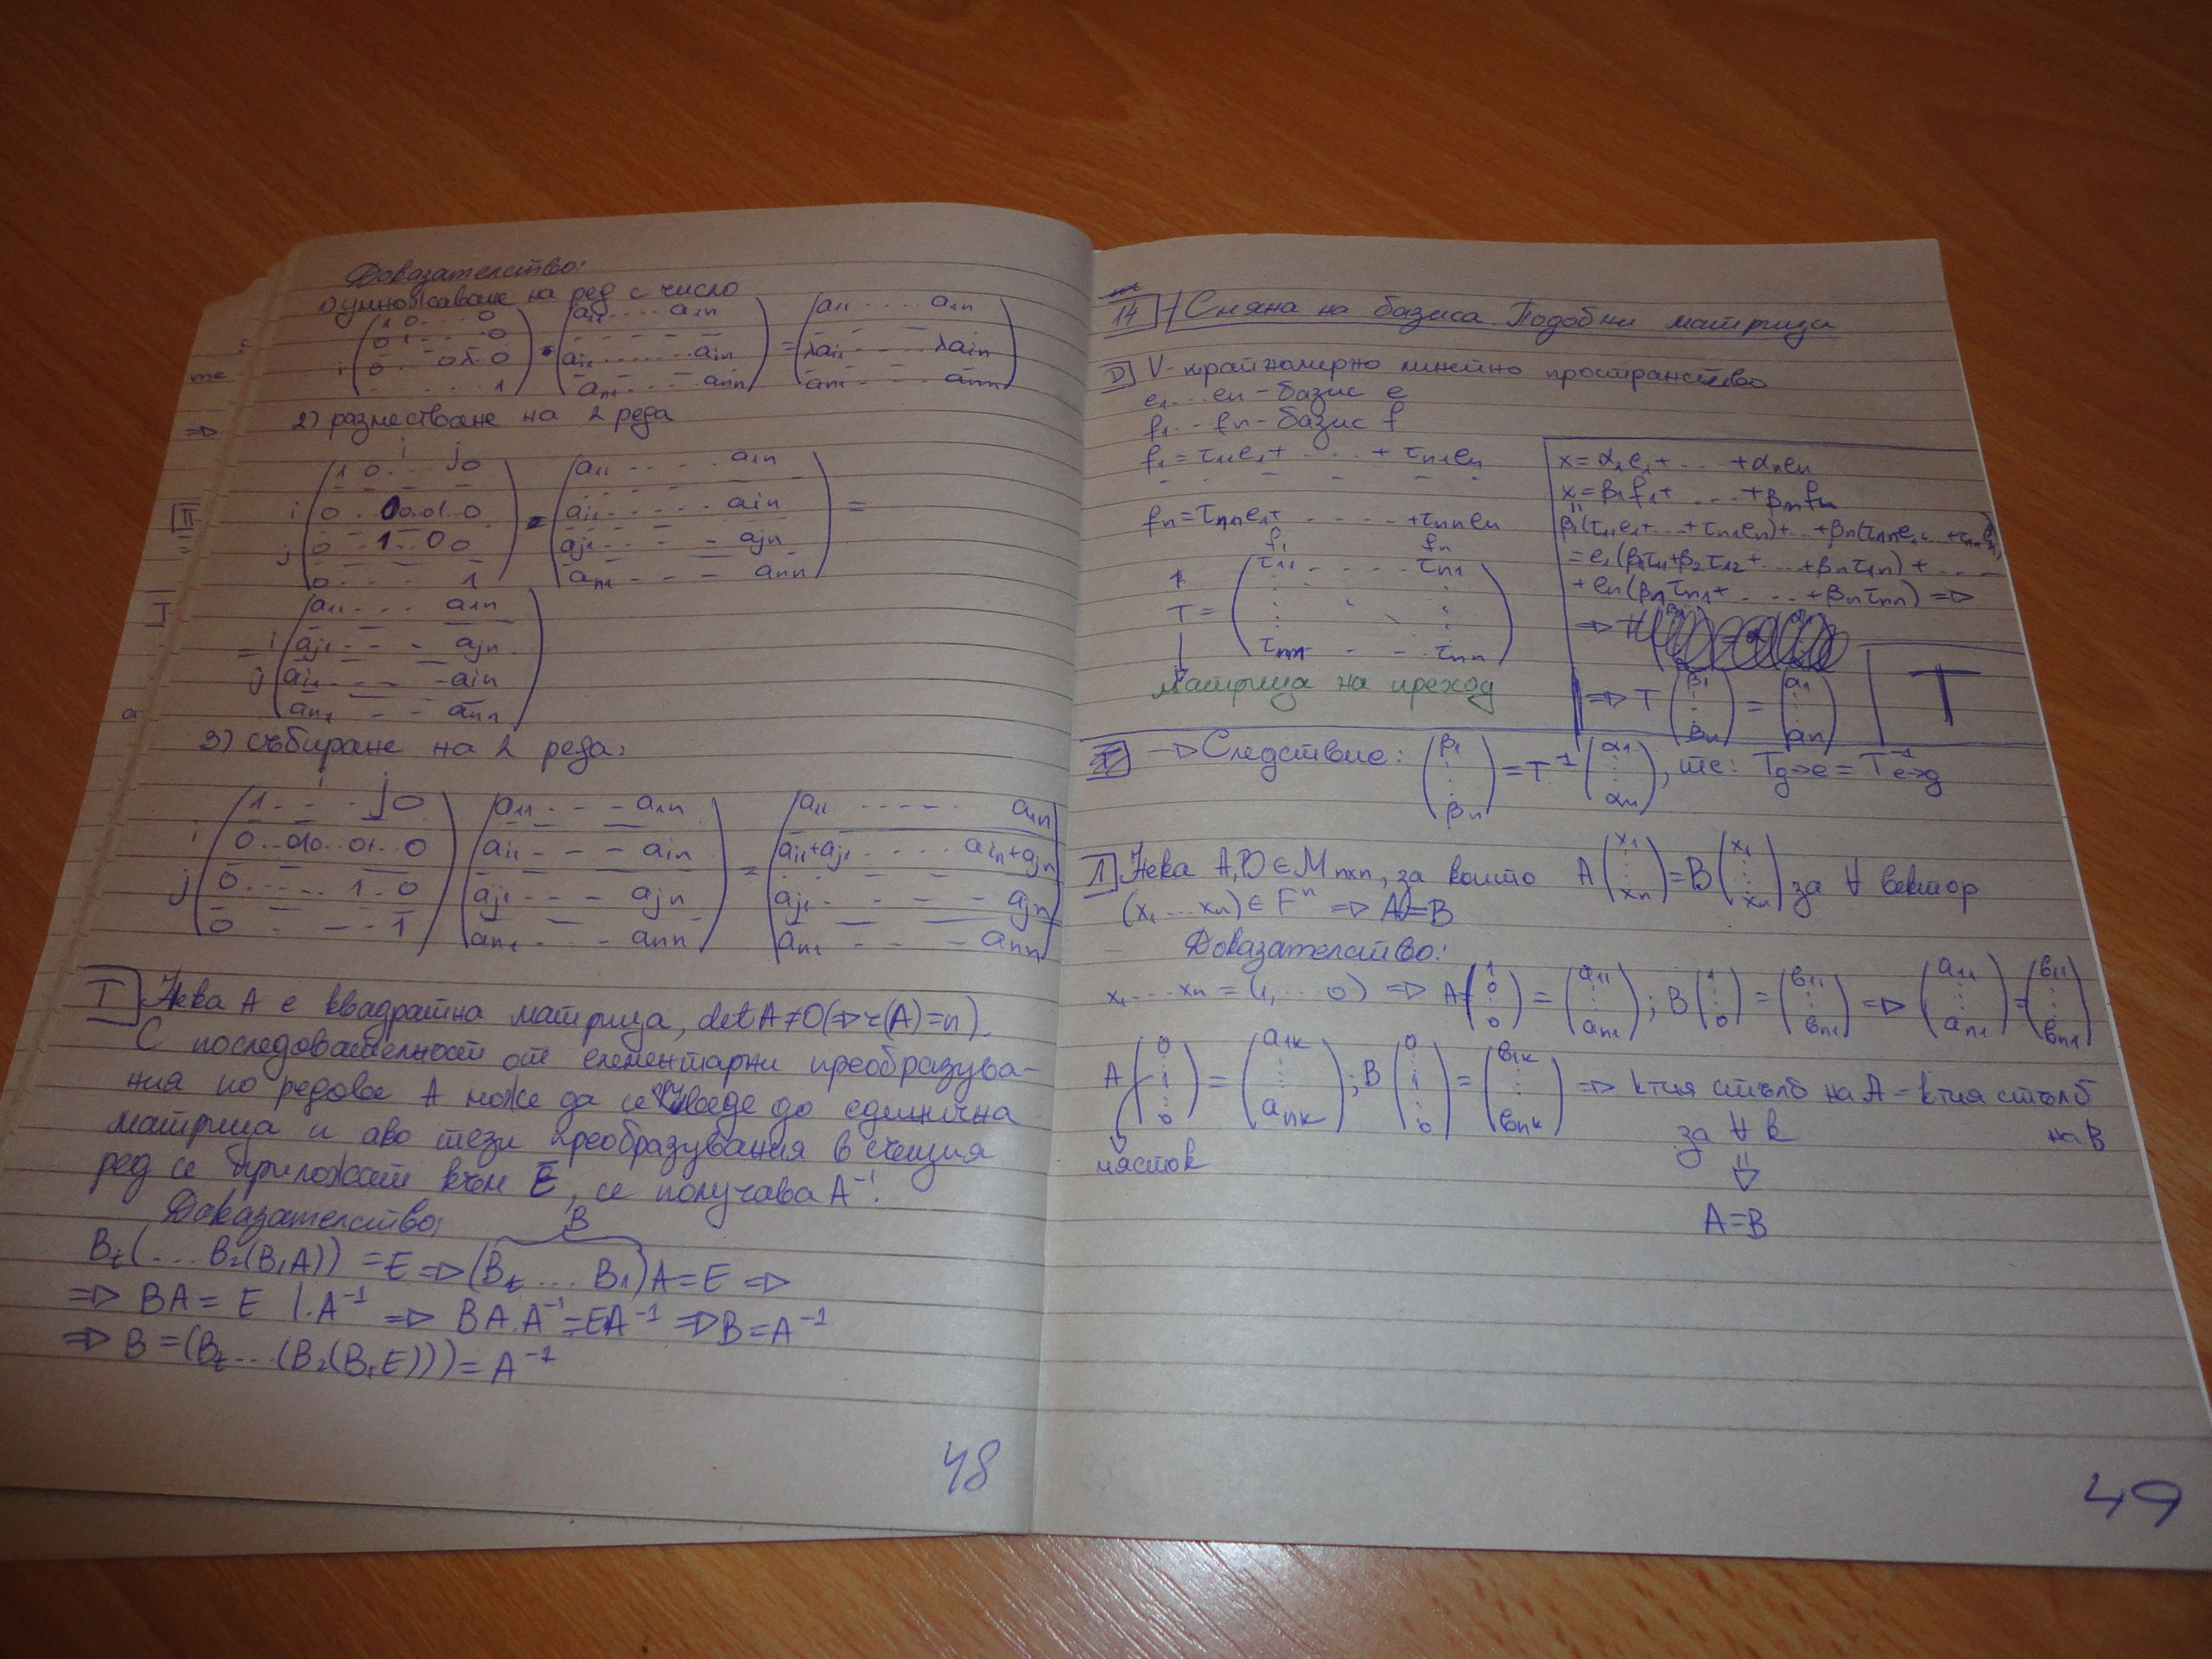 Доказателство:
1) умножаване на ред с число
i ( 1 0 . . . 0 / 0 1 . . . 0 / 0 . . 0 λ 0 / . . . . 1 ) . ( a11 . . . . a1n / ai1 . . . . . ain / an1 . . . ann ) = ( a11 . . . a1n / λai1 . . . λain / an1 . . . ann )
2) разместване на 2 реда
i j
i j ( 1 0 . . . 0 / 0 . . 0 . . 01 . 0 / 0 . . 1 . . 0 0 / 0 . . . 1 ) . ( a11 . . . a1n / ai1 . . . . . ain / aj1 . . . ajn / an1 . . . ann ) =
= i j ( a11 . . . a1n / aj1 . . . ajn / ai1 . . . ain / an1 . . . ann )
3) събиране на 2 реда:
i j
i j ( 1 . . . 0 / 0 . . 010 . . 01 . . 0 / 0 . . . . 1 . 0 / 0 . . . 1 ) ( a11 . . . a1n / ai1 . . . ain / aj1 . . . ajn / an1 . . . ann ) = ( a11 . . . . . a1n / ai1+aj1 . . . . ain+ajn / aj1 . . . . ajn / an1 . . . ann )
T Нека A е квадратна матрица, det A ≠ 0 (⇒ r(A) = n).
С последователност от елементарни преобразува-
ния по редове A може да се сведе до единична
матрица и ако тези преобразувания в същия
ред се приложат към E, се получава A⁻¹.
Доказателство:
B
Bt(... B2(B1A)) = E ⇒ (Bt ... B1)A = E ⇒
⇒ BA = E |.A⁻¹ ⇒ BA.A⁻¹ = EA⁻¹ ⇒ B = A⁻¹
⇒ B = (Bt...(B2(B1E))) = A⁻¹
48
14 Смяна на базиса. Подобни матрици
D V - крайномерно линейно пространство
e1....en - базис e
f1...fn - базис f
f1 = τ11e1 + . . . + τn1en
fn = τ1ne1 + . . . . + τnnen
f1 fn
T = ( τ11 . . . . τn1 / τn1 . . . τnn )
матрица на преход
x = α1e1 + . . . + αnen
x = β1f1 + . . . + βnfn
=
β1(τ11e1 + ... + τn1en) + .. + βn(τ1ne1 .. + τnnen)
= e1(β1τ11 + β2τ12 + ... + βnτ1n) + . . .
+ en(β1τn1 + . . . + βnτnn) ⇒
⇒ T
⇒ T ( β1 / . / βn ) = ( α1 / . / αn )
T
→ Следствие: ( β1 / . / βn ) = T⁻¹ ( α1 / . / αn ), те: Tg→e = T⁻¹e→g
Л Нека A, B ∈ Mnxn, за които A ( x1 / . / xn ) = B ( x1 / . / xn ) за ∀ вектор
(x1...xn) ∈ Fⁿ ⇒ A=B
Доказателство:
x1....xn = (1, ... 0) ⇒ A ( 1 / 0 / . / 0 ) = ( a11 / . / an1 ); B ( 1 / . / 0 ) = ( b11 / . / bn1 ) ⇒ ( a11 / . / an1 ) = ( b11 / . / bn1 )
A ( 0 / 1 / 0 ) = ( a1k / . / ank ); B ( 0 / 1 / 0 ) = ( b1k / . / bnk ) ⇒ k тия стълб на A = k тия стълб
на B
за ∀ k
мясток
⇓
A=B
49
me
⇒
II
T
a